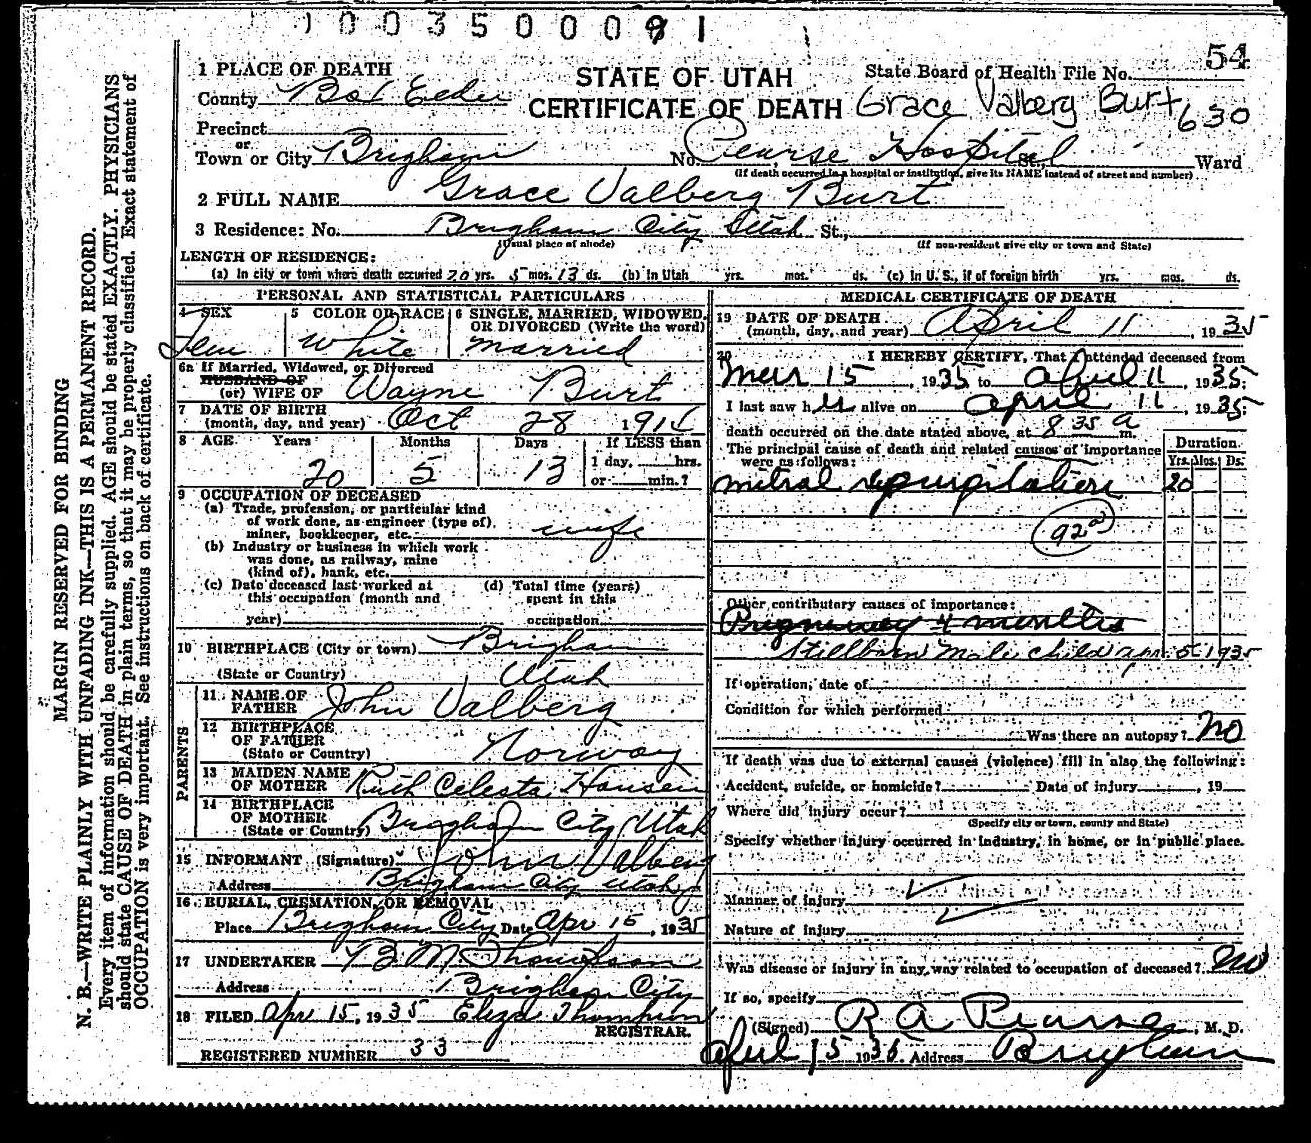 1003500091
54
1 PLACE OF DEATH
STATE OF UTAH
State Board of Health File No.
County Box Elder
CERTIFICATE OF DEATH
Grace Valberg Burt
630
Precinct
or
Town or City Brigham No. Pearse Hospital St., Ward
(If death occurred in a hospital or institution, give its NAME instead of street and number)
2 FULL NAME Grace Valberg Burt
3 Residence: No. Brigham City Utah St.,
(Usual place of abode) (If non-resident give city or town and State)
LENGTH OF RESIDENCE:
(a) In city or town where death occurred 20 yrs. 5 mos. 13 ds. (b) In Utah yrs. mos. ds. (c) In U. S., if of foreign birth yrs. mos. ds.
PERSONAL AND STATISTICAL PARTICULARS
4 SEX 5 COLOR OR RACE 6 SINGLE, MARRIED, WIDOWED, OR DIVORCED (Write the word)
Fem White Married
6a If Married, Widowed, or Divorced
HUSBAND OF
(or) WIFE OF Wayne Burt
7 DATE OF BIRTH
(month, day, and year) Oct 28 1914
8 AGE Years Months Days If LESS than
20 5 13 1 day, hrs.
or min.?
9 OCCUPATION OF DECEASED
(a) Trade, profession, or particular kind
of work done, as engineer (type of)
miner, bookkeeper, etc. wife
(b) Industry or business in which work
was done, as railway, mine
(kind of), bank, etc.
(c) Date deceased last worked at (d) Total time (years)
this occupation (month and spent in this
year) occupation
10 BIRTHPLACE (City or town) Brigham
(State or Country) Utah
PARENTS
11 NAME OF
FATHER John Valberg
12 BIRTHPLACE
OF FATHER
(State or Country) Norway
13 MAIDEN NAME
OF MOTHER Ruth Celesta Hansen
14 BIRTHPLACE
OF MOTHER
(State or Country) Brigham City Utah
15 INFORMANT (Signature) John Valberg
Address Brigham City Utah
16 BURIAL, CREMATION, OR REMOVAL
Place Brigham City Date Apr 15, 1935
17 UNDERTAKER B M Thompson
Address Brigham City
18 FILED Apr 15, 1935 Eliza Thompson
REGISTRAR.
REGISTERED NUMBER 33
MEDICAL CERTIFICATE OF DEATH
19 DATE OF DEATH
(month, day, and year) April 11, 1935
20 I HEREBY CERTIFY, That I attended deceased from
Mar 15, 1935 to April 11, 1935:
I last saw her alive on April 11, 1935:
death occurred on the date stated above, at 8 35 a m.
The principal cause of death and related causes of importance
were as follows:
Duration
Yrs. Mos. Ds.
mitral regurgitation 20
92a
Other contributory causes of importance:
Pregnancy 4 months
Stillborn Male child Apr. 5 1935
If operation, date of
Condition for which performed
Was there an autopsy? No
If death was due to external causes (violence) fill in also the following:
Accident, suicide, or homicide? Date of injury, 19
Where did injury occur?
(Specify city or town, county and State)
Specify whether injury occurred in industry, in home, or in public place.
Manner of injury
Nature of injury
Was disease or injury in any way related to occupation of deceased? No
If so, specify
(Signed) R A Pearse, M. D.
April 15 1935 Address Brigham
MARGIN RESERVED FOR BINDING
N. B.—WRITE PLAINLY WITH UNFADING INK—THIS IS A PERMANENT RECORD.
Every item of information should be carefully supplied. AGE should be stated EXACTLY. PHYSICIANS
should state CAUSE OF DEATH in plain terms, so that it may be properly classified. Exact statement of
OCCUPATION is very important. See instructions on back of certificate.